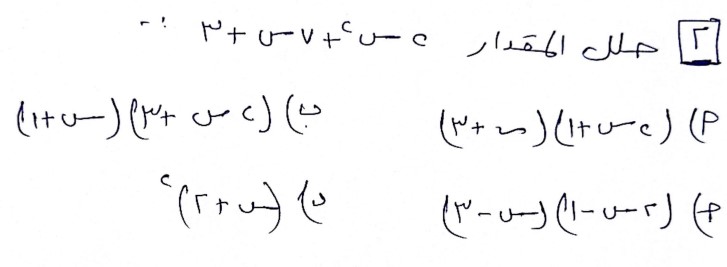 ٢ حلل المقدار ٢س٢ + ٧س + ٣ ..
أ) (٢س + ١)(س + ٣) ب) (٢س + ٣)(س + ١)
ج) (٢س - ١)(س - ٣) د) (س + ٢)٢